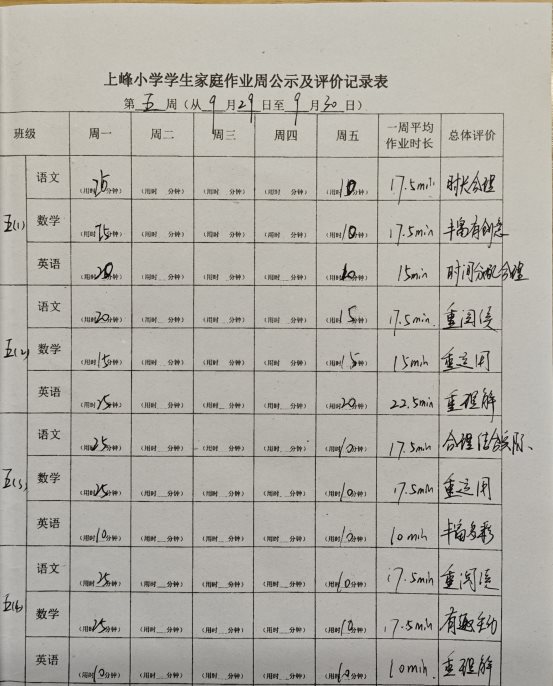 上峰小学学生家庭作业周公示及评价记录表
第 五 周（从 9 月 29 日至 9 月 30 日）
班级 周一 周二 周三 周四 周五 一周平均作业时长 总体评价
五(1) 语文 （用时25分钟） （用时 分钟） （用时 分钟） （用时 分钟） （用时10分钟） 17.5min 时长合理
数学 （用时25分钟） （用时 分钟） （用时 分钟） （用时 分钟） （用时10分钟） 17.5min 丰富有创意
英语 （用时20分钟） （用时 分钟） （用时 分钟） （用时 分钟） （用时10分钟） 15min 时间分配合理
五(2) 语文 （用时20分钟） （用时 分钟） （用时 分钟） （用时 分钟） （用时15分钟） 17.5min. 重阅读
数学 （用时15分钟） （用时 分钟） （用时 分钟） （用时 分钟） （用时15分钟） 15min 重运用
英语 （用时25分钟） （用时 分钟） （用时 分钟） （用时 分钟） （用时20分钟） 22.5min 重理解
五(3) 语文 （用时25分钟） （用时 分钟） （用时 分钟） （用时 分钟） （用时10分钟） 17.5min 合理结合实际、
数学 （用时25分钟） （用时 分钟） （用时 分钟） （用时 分钟） （用时10分钟） 17.5min 重运用
英语 （用时10分钟） （用时 分钟） （用时 分钟） （用时 分钟） （用时10分钟） 10min 丰富多彩
五(4) 语文 （用时25分钟） （用时 分钟） （用时 分钟） （用时 分钟） （用时10分钟） 17.5min 重阅读
数学 （用时25分钟） （用时 分钟） （用时 分钟） （用时 分钟） （用时10分钟） 17.5min 有趣生动
英语 （用时10分钟） （用时 分钟） （用时 分钟） （用时 分钟） （用时10分钟） 10min. 重理解